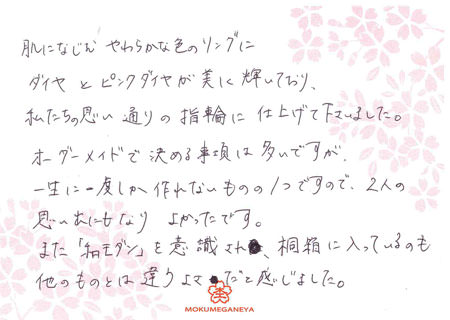 肌になじむ やわらかな色のリングに
ダイヤ と ピンクダイヤが美しく輝いており、
私たちの思い通りの指輪に仕上げて下さいました。
オーダーメイドで決める事項は多いですが、
一生に一度しか作れないものの1つですので、2人の
思い出にもなり よかったです。
また「和モダン」を意識され、桐箱に入っているのも
他のものとは違りよさだと感じました。
MOKUMEGANEYA